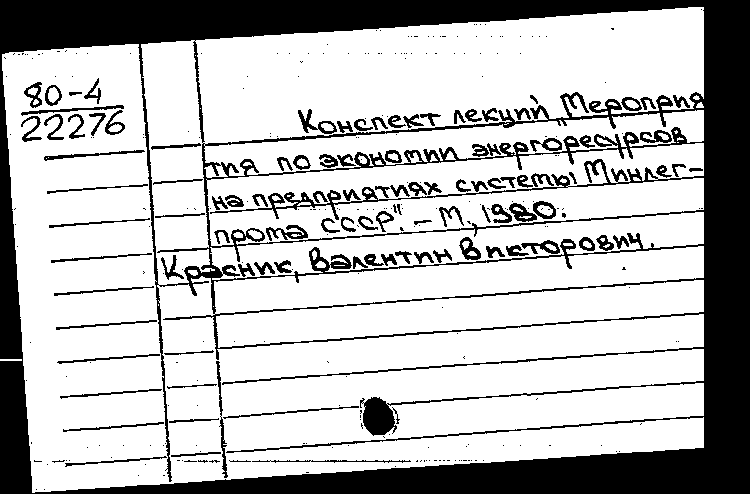 80-4
22276
Конспект лекций „Мероприя
тия по экономии энергоресурсов
на предприятиях системы Минлег-
прома СССР". - М., 1980.
Красник, Валентин Викторович.